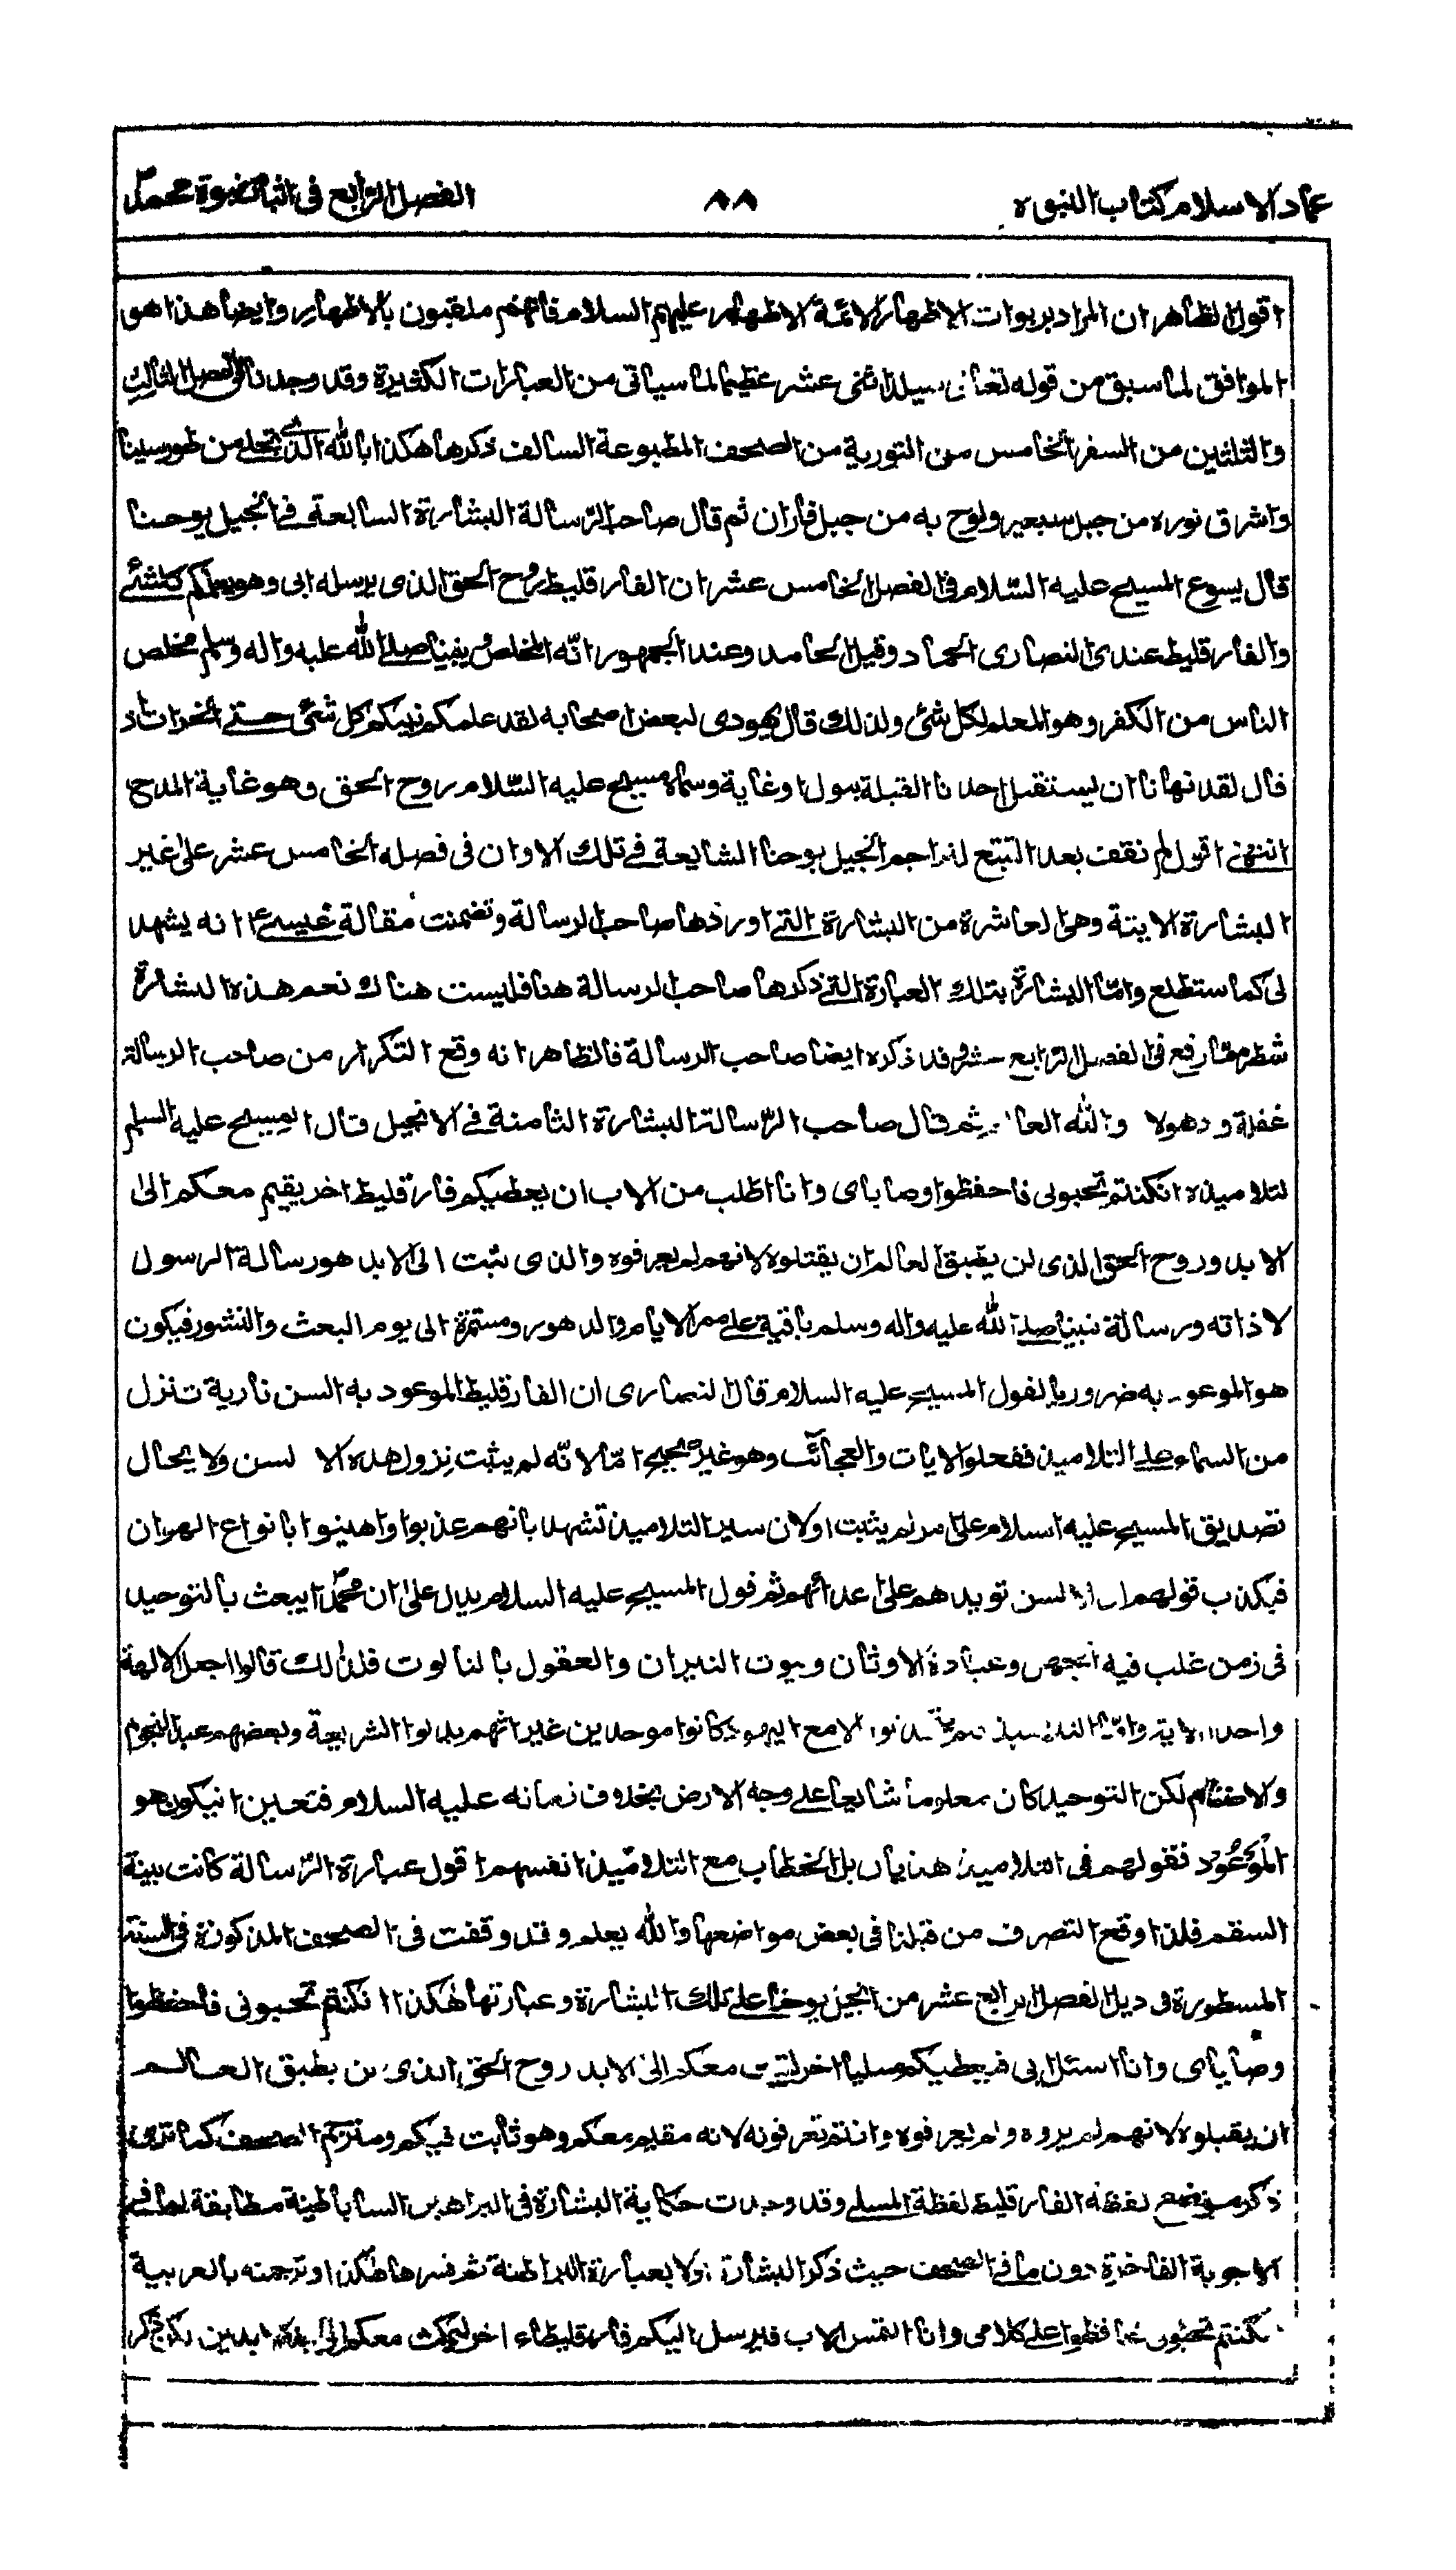 عماد الاسلام كتاب النبوه
٨٨
الفصل الرابع فى اثبات نبوة محمد ص
اقول الظاهر ان المراد بربوات الاطهار الائمة الاطهار عليهم السلام فانهم ملقبون بالاطهار وايضا هذا هو
الموافق لما سبق من قوله تعالى سيلد اثنى عشر عظيما لما سياتى من العبارات الكثيرة وقد وجدنا فى الفصل الثالث
والثلثين من السفر الخامس من التورية من الصحف المطبوعة السالف ذكرها هكذا بالله الذى تجلى من طور سينا
واشرق نوره من جبل سيعير ولوح به من جبل فاران ثم قال صاحب الرسالة البشارة السابعة فى انجيل يوحنا
قال يسوع المسيح عليه السلام فى الفصل الخامس عشر ان الفارقليط روح الحق الذى يرسله ابى وهو يعلمكم كل شئ
والفارقليط عندى النصارى الحماد وقيل الحامد وعند الجمهور انه المخلص ونبينا صلى الله عليه واله وسلم مخلص
الناس من الكفر وهو المعلم لكل شئ ولذلك قال يهودى لبعض اصحابه لقد علمكم نبيكم كل شئ حتى الخراة اذ
قال لقد نهانا ان يستقبل احدنا القبلة ببول او غاية وسماه مسيح عليه السلام روح الحق وهو غاية المدح
انتهى اقول لم نقف بعد التتبع لتراجم انجيل يوحنا الشايعة فى تلك الاوان فى فصله الخامس عشر على غير
البشارة الاتية وهى العاشرة من البشارة التى اوردها صاحب الرسالة وتضمنت مقالة عيسى ع انه يشهد
لى كما ستطلع واما البشارة بتلك العبارة التى ذكرها صاحب الرسالة هنا فليست هناك نعم هذه البشارة
شطر مما رفع فى الفصل الرابع عشر وقد ذكره ايضا صاحب الرسالة فالظاهر انه وقع التكرار من صاحب الرسالة
غفلة و دهولا والله العا ثم قال صاحب الرسالة البشارة الثامنة فى الانجيل قال المسيح عليه السلم
لتلاميذه انكنتم تحبونى فاحفظوا وصاياى وانا اطلب من الاب ان يعطيكم فارقليط اخر يقيم معكم الى
الابد وروح الحق الذى لن يطيق العالم ان يقتلوه لانهم لم يعرفوه والذى ثبت الى الابد هو رسالة الرسول
لا ذاته ورسالة نبينا صلى الله عليه واله وسلم باقية على ممر الايام والدهور ومستمرة الى يوم البعث والنشور فيكون
هو الموعود به ضرور بالقول المسيح عليه السلام قال النصارى ان الفارقليط الموعود به السن نارية تنزل
من السماء على التلاميذ ففعلوا الايات والعجائب وهو غير صحيح اما لانه لم يثبت نزول هذه الا لسن ولا يحال
تصديق المسيح عليه السلام على امر لم يثبت اولان سير التلاميذ تشهد بانهم عذبوا واهينوا بانواع الهوان
فيكذب قولهم السن تويدهم على اعدائهم ثم قول المسيح عليه السلام يدل على ان محمدا يبعث بالتوحيد
فى زمن غلب فيه وعبادة الاوثان وبيوت النيران والعقول بالثالوت فلذلك قالوا اجعل الالهة
واحدا الاية واما التلاميذ كانوا الا مع اليهود كانوا موحدين غير انهم بدلوا الشريعة وبعضهم عبد النجوم
والاصنام لكن التوحيد كان معلوما شايعا على وجه الارض بخلاف زمانه عليه السلام فتعين انيكون هو
الموعود فقولهم فى التلاميذ هذيان بل الخطاب مع التلاميذ انفسهم اقول عبارة الرسالة كانت بينة
السقم فلذا وقع التصرف من قبلنا فى بعض مواضعها والله يعلم وقد وقفت فى الصحف المذكورة فى السنة
المسطورة فى ذيل الفصل الرابع عشر من انجيل يوحنا على تلك البشارة وعبارتها هكذا انكنتم تحبونى فاحفظوا
وصاياى وانا اسئل ابى فيعطيكم مسليا اخر ليثبت معكم الى الابد روح الحق الذى لن يطيق العالم
ان يقبلوه لانهم لم يروه ولم يعرفوه وانتم تعرفونه لانه مقيم معكم وهو ثابت فيكم ومترجم الصحف كما ترى
ذكر موضع لفظه الفارقليط لفظة المسلى وقد وجدت حكاية البشارة فى البراهين الساباطية مطابقة لما فى
الاجوبة الفاخرة دون ما فى الصحف حيث ذكر البشارة اولا بعبارة ثم فسرها هكذا وترجمته بالعربية
نكنتم تحبونى فحافظوا على كلامى وانا التمس الاب فيرسل اليكم فارقليطاء اخر ليمكث معكم الى